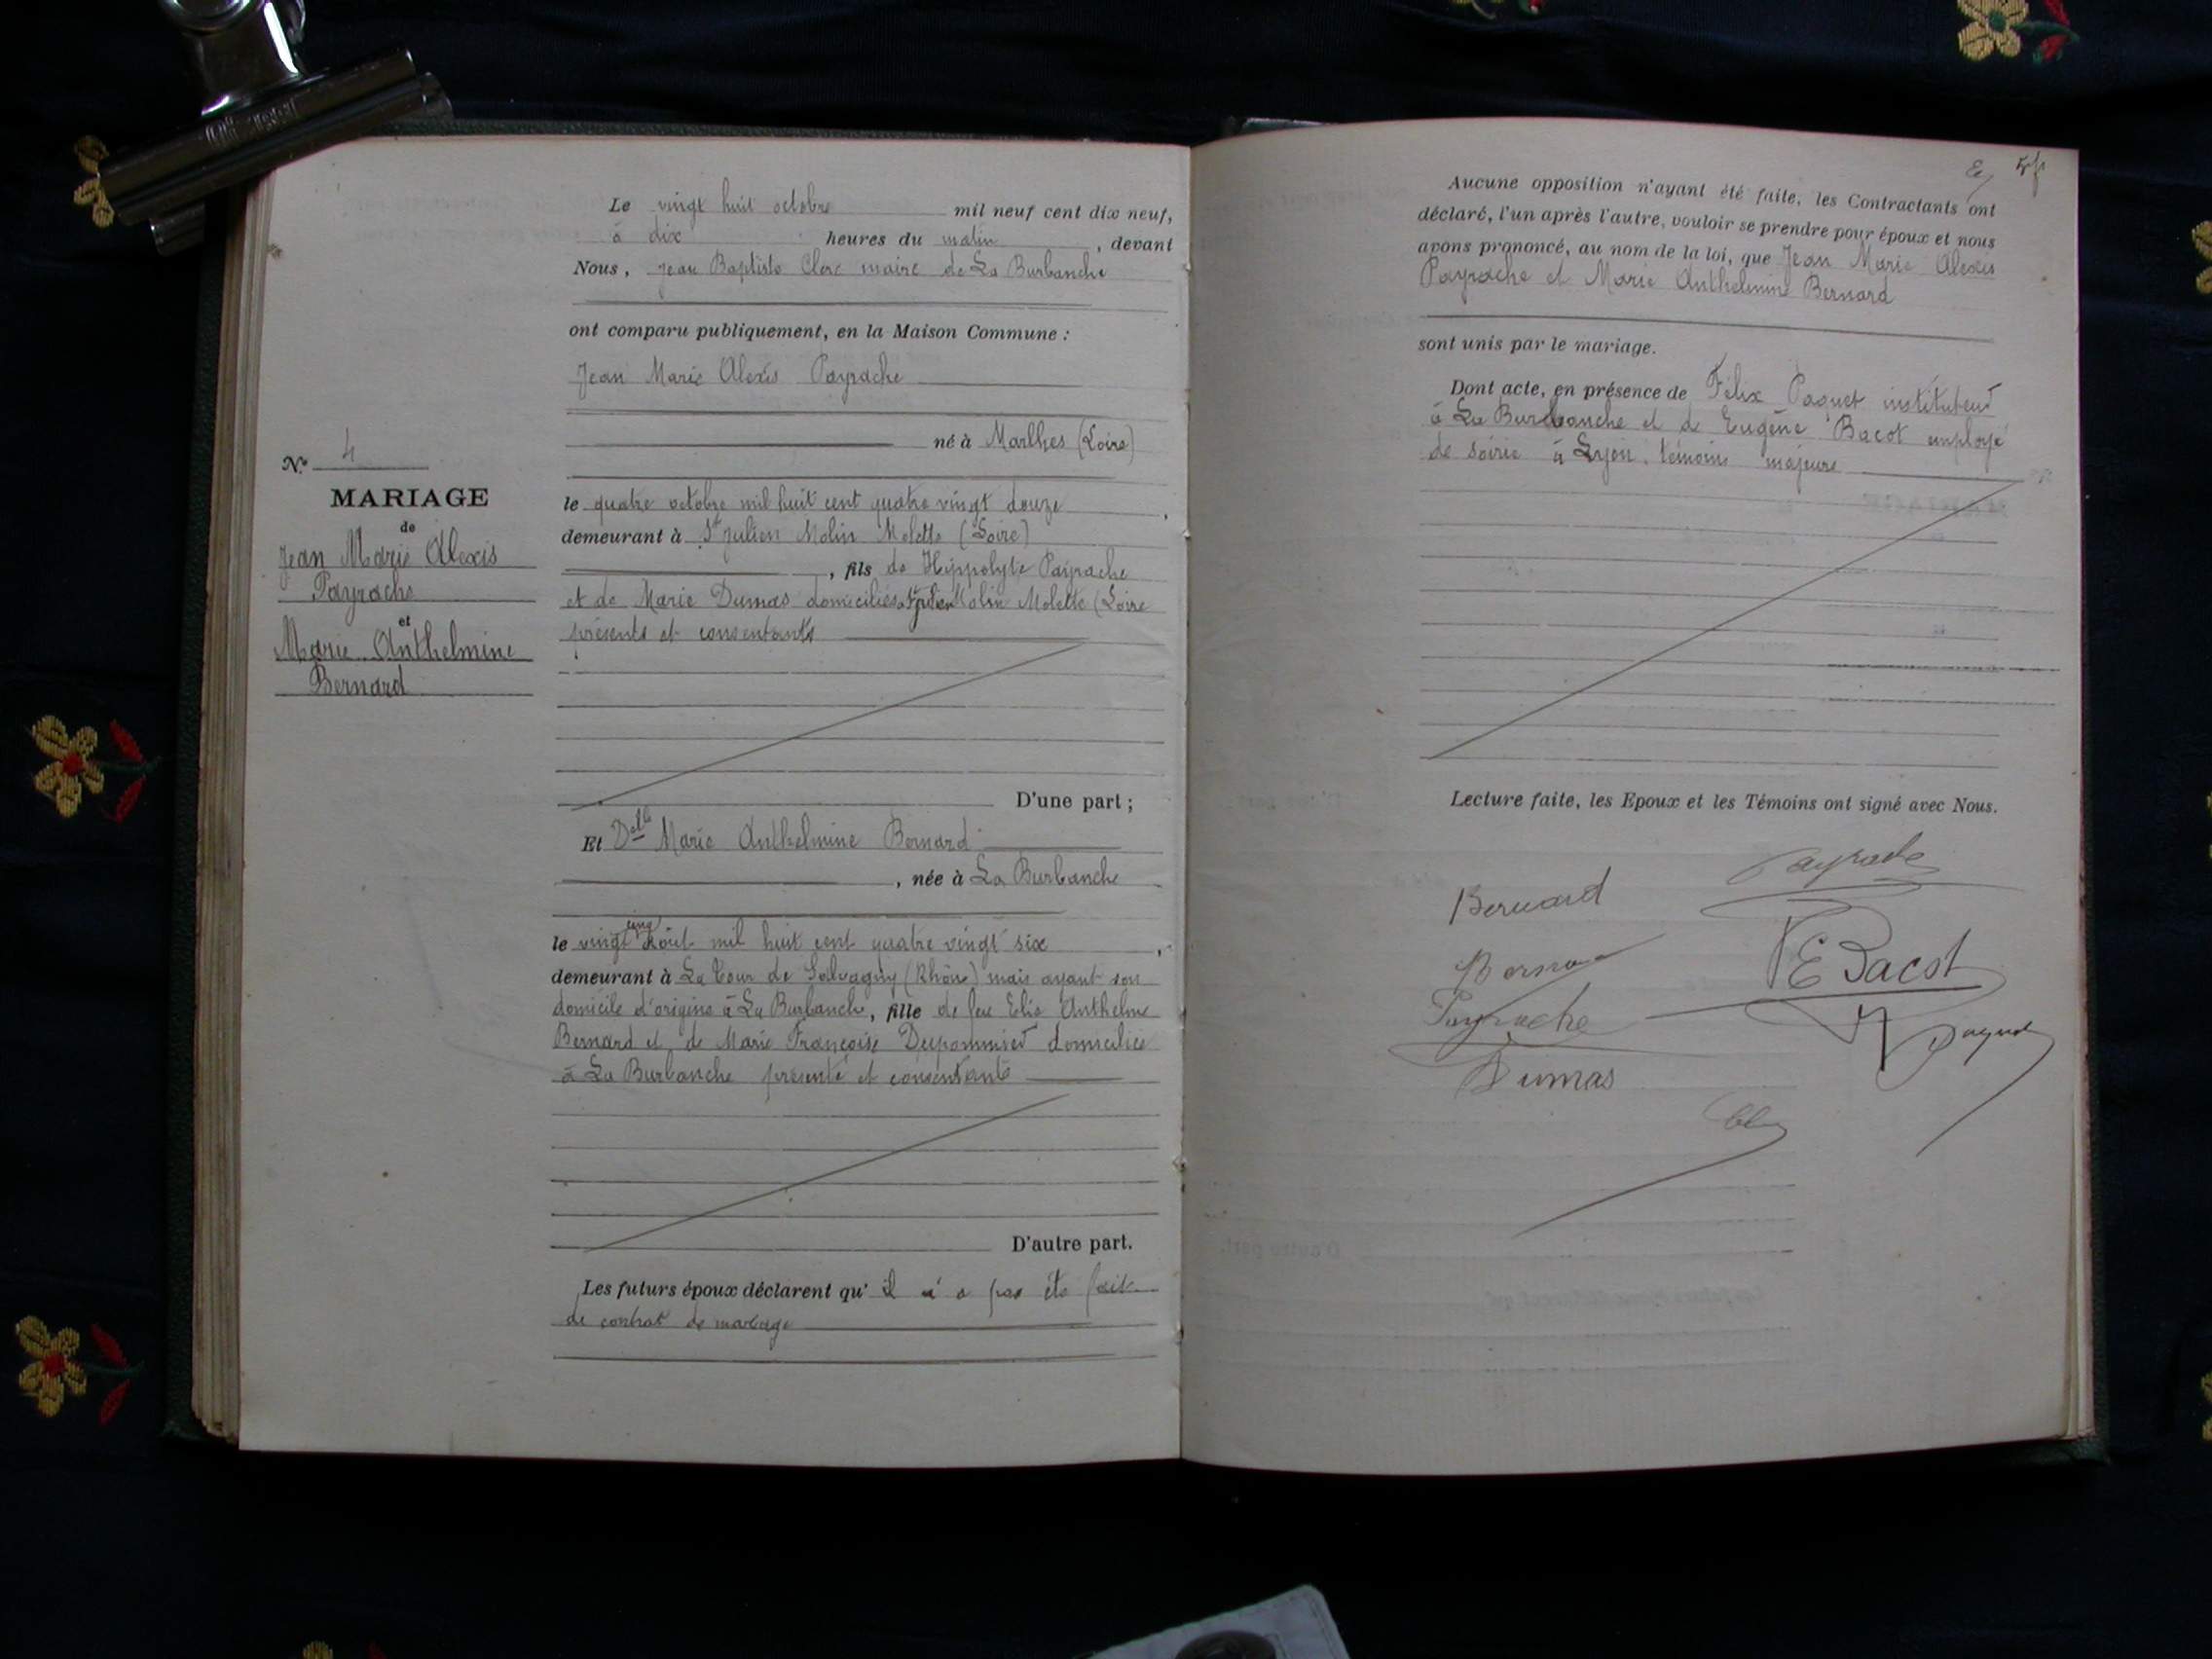 N° 4
MARIAGE
de
Jean Marie Alexis
Payrache
et
Marie Anthelmine
Bernard
Le vingt huit octobre mil neuf cent dix neuf,
à dix heures du matin, devant
Nous, Jean Baptiste Clerc maire de La Burbanche
ont comparu publiquement, en la Maison Commune :
Jean Marie Alexis Payrache
né à Marlhes (Loire)
le quatre octobre mil huit cent quatre vingt douze,
demeurant à St Julien Molin Molette (Loire)
, fils de Hippolyte Payrache
et de Marie Dumas domiciliés à St Julien Molin Molette (Loire
présents et consentants
D'une part ;
Et Delle Marie Anthelmine Bernard
, née à La Burbanche
le vingt cinq août mil huit cent quatre vingt six,
demeurant à La Tour de Salvagny (Rhône) mais ayant son
domicile d'origine à La Burbanche, fille de feu Elie Anthelme
Bernard et de Marie Françoise Dupommier domiciliée
à La Burbanche présente et consentante
D'autre part.
Les futurs époux déclarent qu'il n'a pas été fait
de contrat de mariage
Aucune opposition n'ayant été faite, les Contractants ont
déclaré, l'un après l'autre, vouloir se prendre pour époux et nous
avons prononcé, au nom de la loi, que Jean Marie Alexis
Payrache et Marie Anthelmine Bernard
sont unis par le mariage.
Dont acte, en présence de Félix Paquet instituteur
à La Burbanche et de Eugène Bacot employé
de soirie à Lyon, témoins majeurs
Lecture faite, les Epoux et les Témoins ont signé avec Nous.
Payrache
Bernard
E Bacot
Payrache
Paquet
Dumas